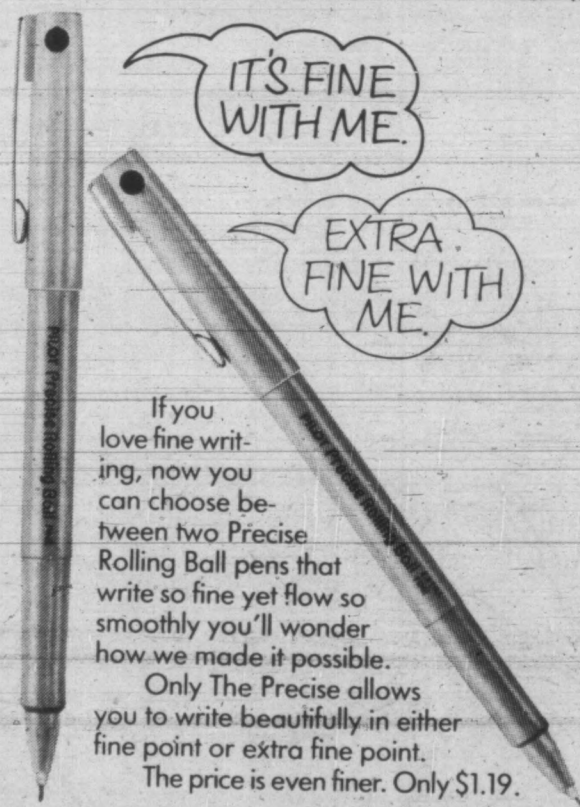 IT'S FINE
WITH ME.
EXTRA
FINE WITH
ME.
PILOT Precise Rolling Ball
PILOT Precise Rolling Ball
If you
love fine writ-
ing, now you
can choose be-
tween two Precise
Rolling Ball pens that
write so fine yet flow so
smoothly you'll wonder
how we made it possible.
Only The Precise allows
you to write beautifully in either
fine point or extra fine point.
The price is even finer. Only $1.19.